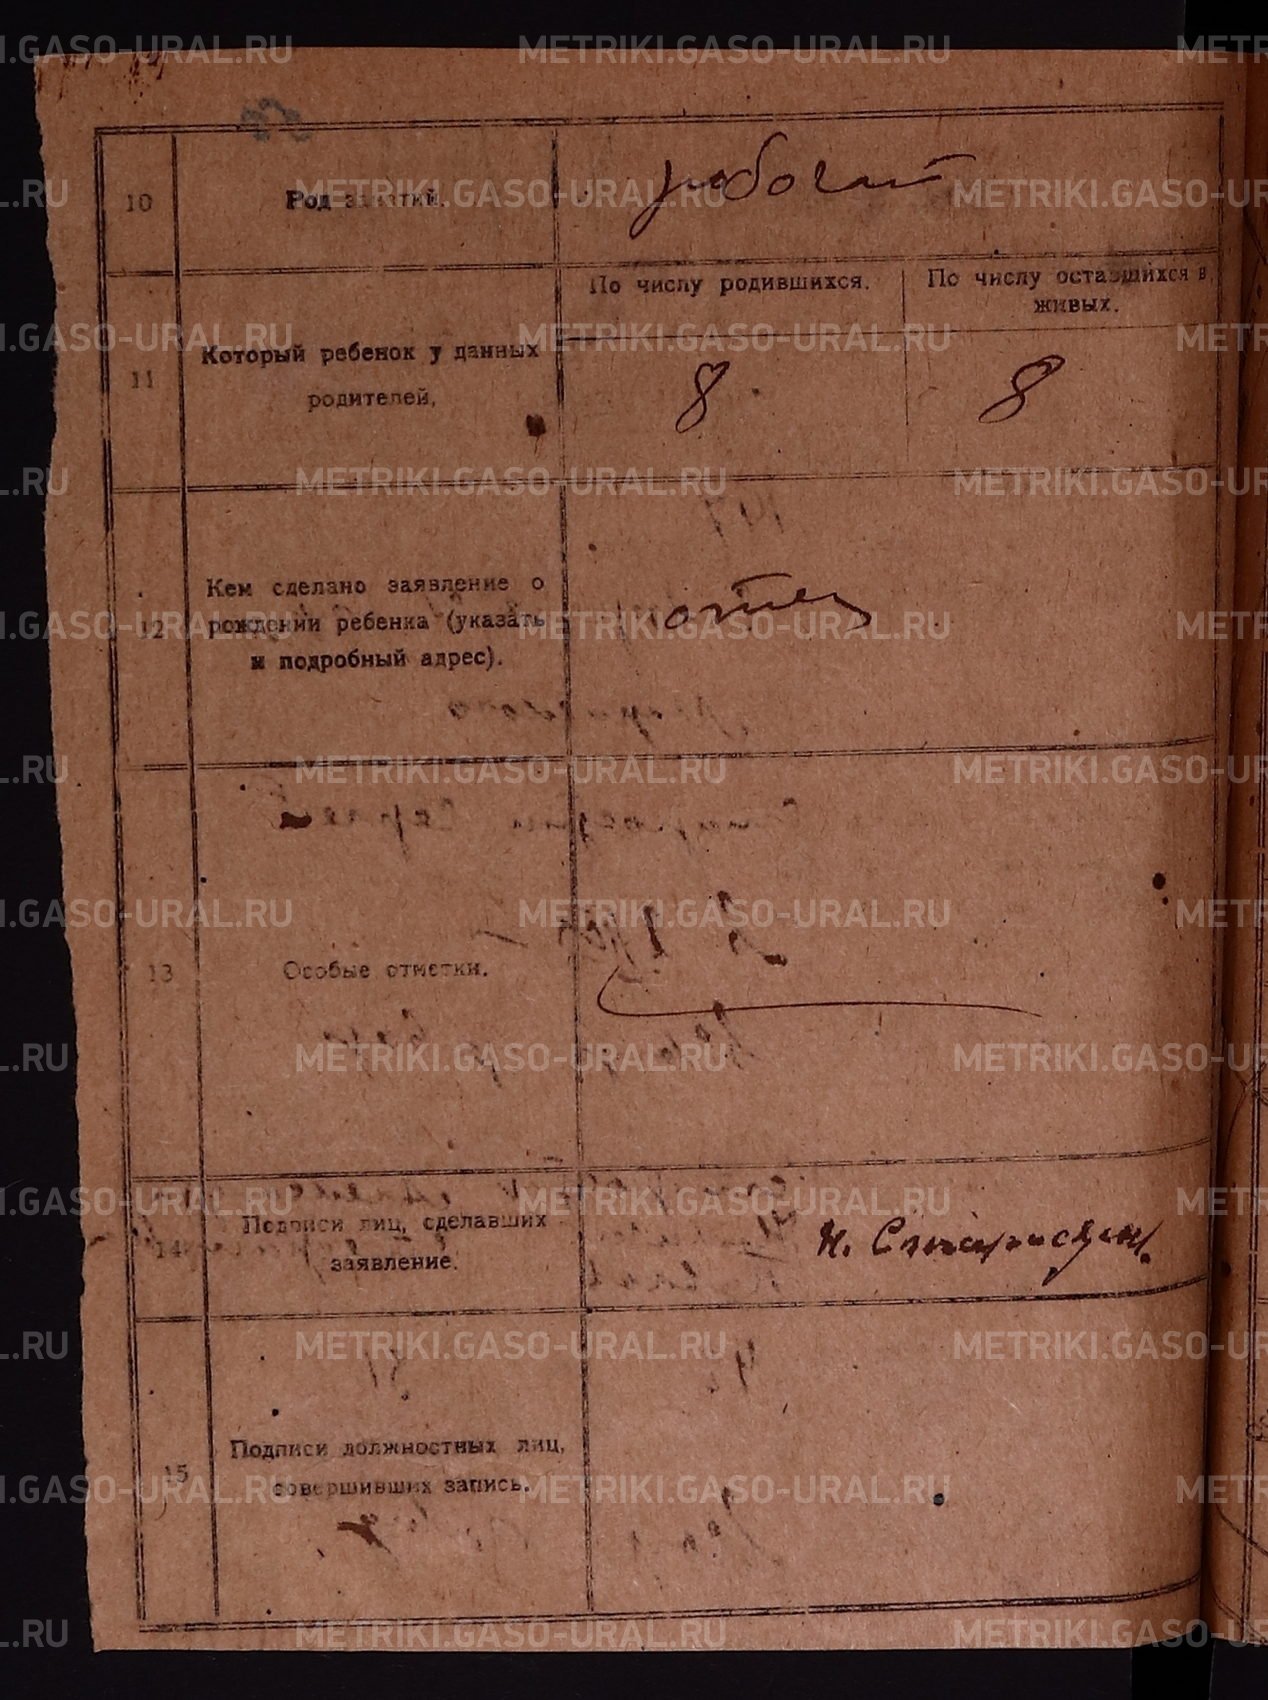 METRIKI.GASO-URAL.RU
10
Род занятий.
рабочий
11
Который ребенок у данных
родителей,
По числу родившихся.
По числу оставшихся в
живых.
8
8
12
Кем сделано заявление о
рождении ребенка (указать
и подробный адрес).
отец
13
Особые отметки.
14
Подписи лиц, сделавших
заявление.
15
Подписи должностных лиц,
совершивших запись.